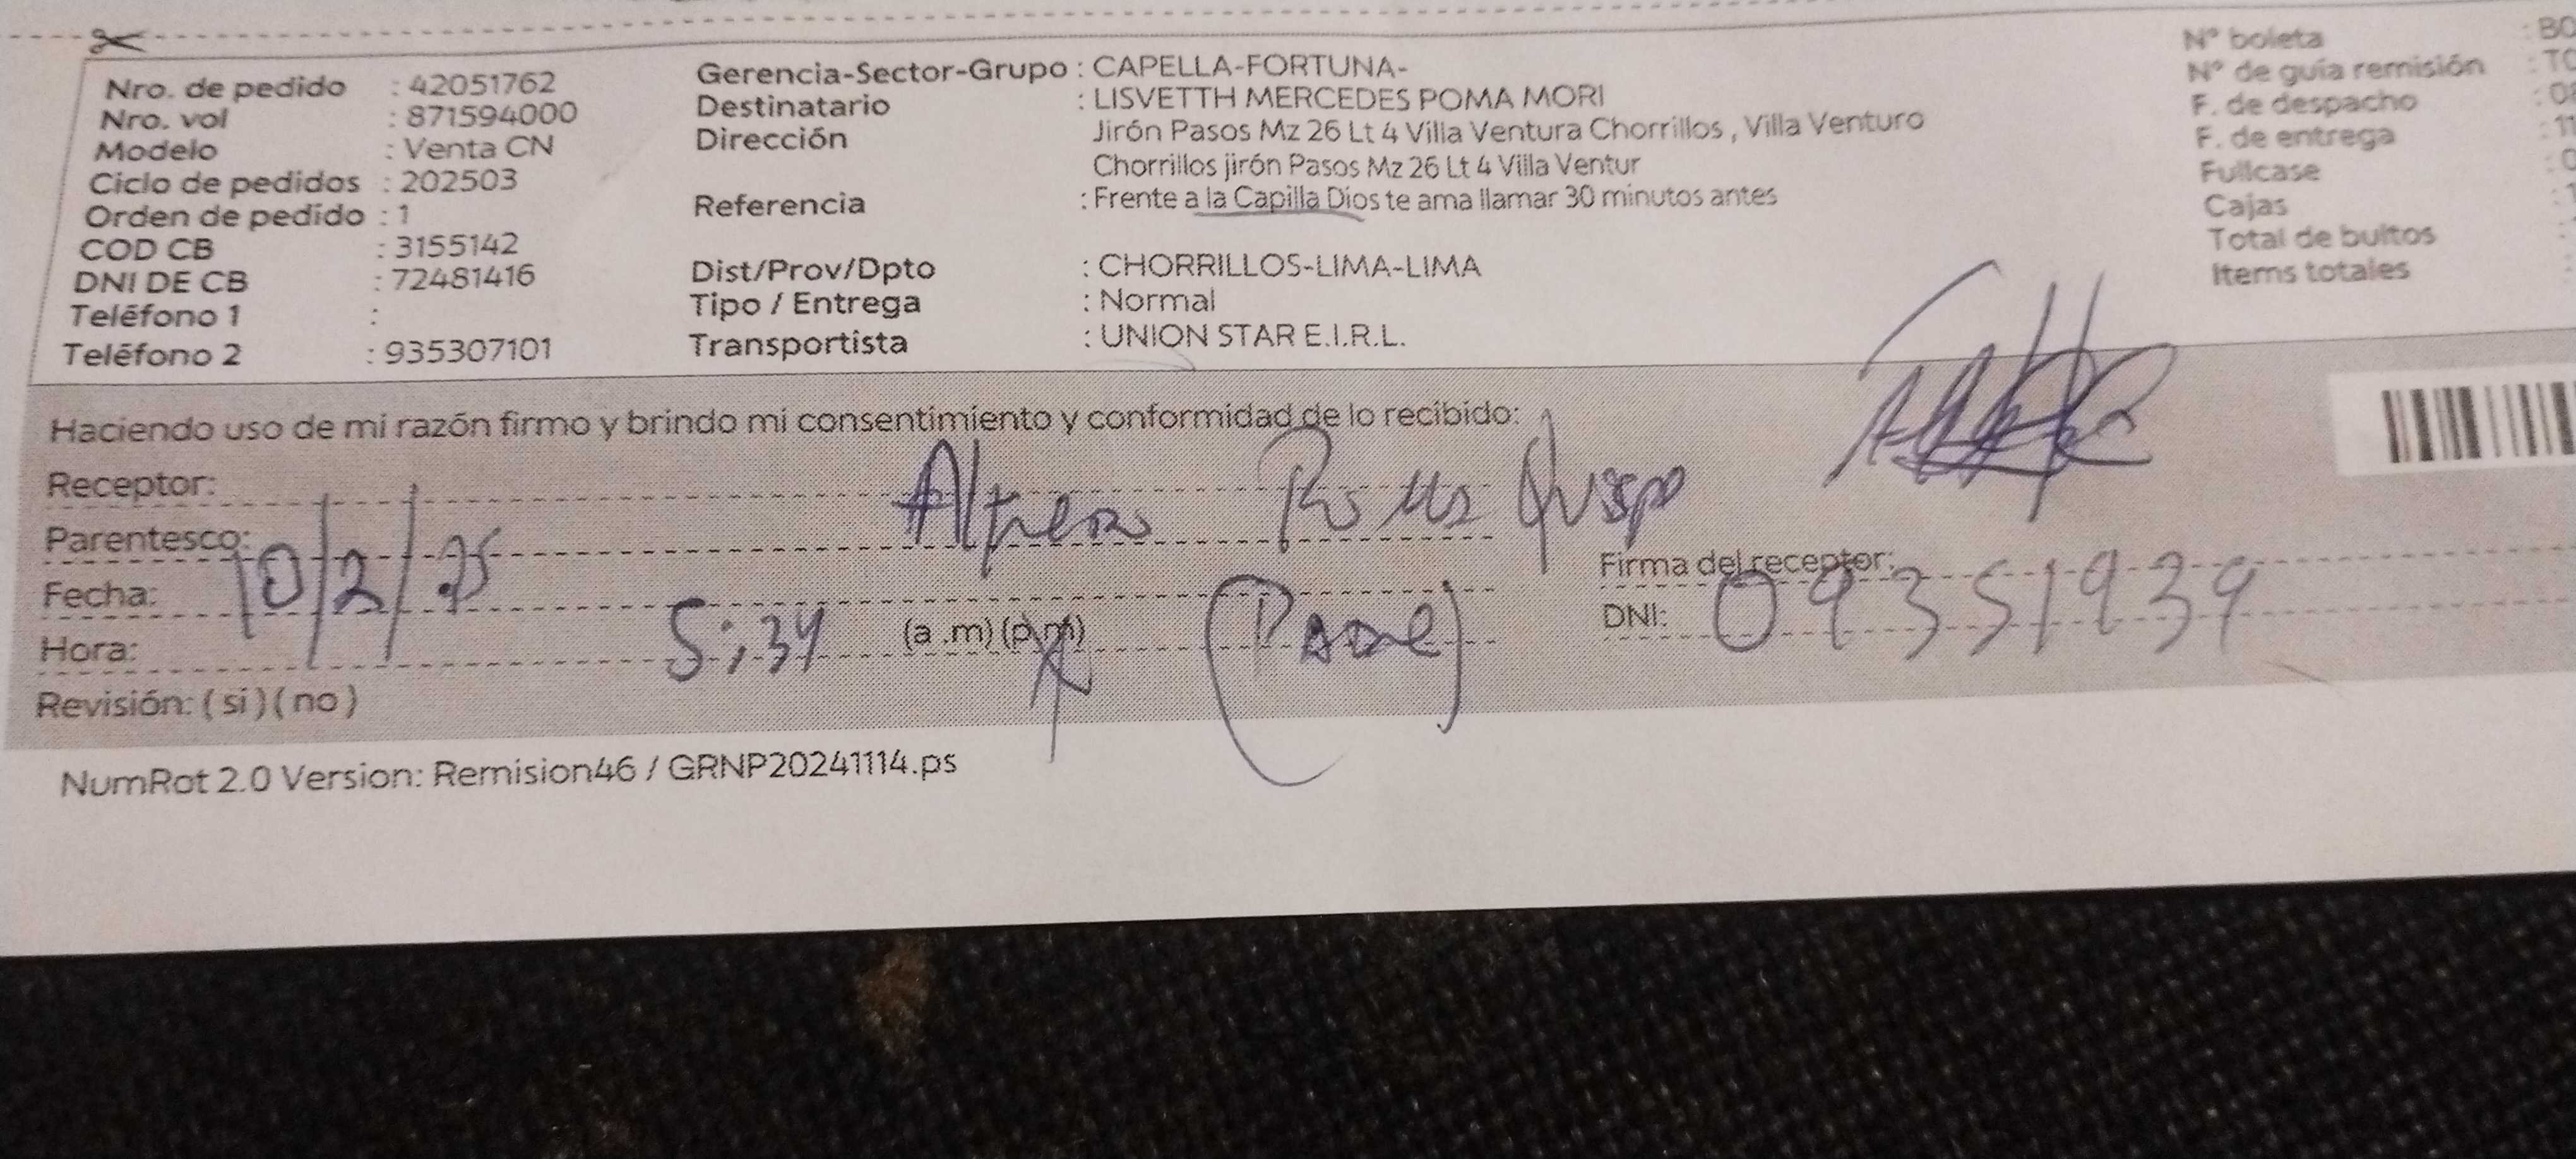 Nro. de pedido : 42051762
Nro. vol : 871594000
Modelo : Venta CN
Ciclo de pedidos : 202503
Orden de pedido : 1
COD CB : 3155142
DNI DE CB : 72481416
Teléfono 1 :
Teléfono 2 : 935307101
Gerencia-Sector-Grupo : CAPELLA-FORTUNA-
Destinatario : LISVETTH MERCEDES POMA MORI
Dirección Jirón Pasos Mz 26 Lt 4 Villa Ventura Chorrillos , Villa Venturo
Chorrillos jirón Pasos Mz 26 Lt 4 Villa Ventur
Referencia : Frente a la Capilla Dios te ama llamar 30 minutos antes
Dist/Prov/Dpto : CHORRILLOS-LIMA-LIMA
Tipo / Entrega : Normal
Transportista : UNION STAR E.I.R.L.
N° boleta : BO
N° de guía remisión : TO
F. de despacho : 08
F. de entrega : 11
Fullcase : 0
Cajas : 1
Total de bultos :
Items totales :
Haciendo uso de mi razón firmo y brindo mi consentimiento y conformidad de lo recibido:
Receptor:
Parentesco:
Fecha: 10/2/25
Hora: 5:34 (a .m) (p.m)
Revisión: ( si ) ( no )
Firma del receptor:
DNI: 09351939
NumRot 2.0 Version: Remision46 / GRNP20241114.ps